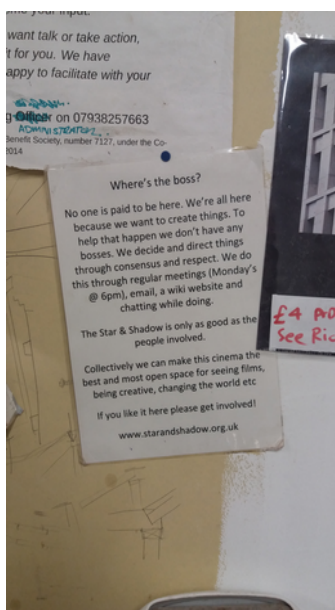 want talk or take action,
it for you. We have
appy to facilitate with your
g Officer on 07938257663
ADMINISTRATOR
Benefit Society, number 7127, under the Co-
2014
Where's the boss?
No one is paid to be here. We're all here
because we want to create things. To
help that happen we don't have any
bosses. We decide and direct things
through consensus and respect. We do
this through regular meetings (Monday's
@ 6pm), email, a wiki website and
chatting while doing.
The Star & Shadow is only as good as the
people involved.
Collectively we can make this cinema the
best and most open space for seeing films,
being creative, changing the world etc
If you like it here please get involved!
www.starandshadow.org.uk
£4
See Ric